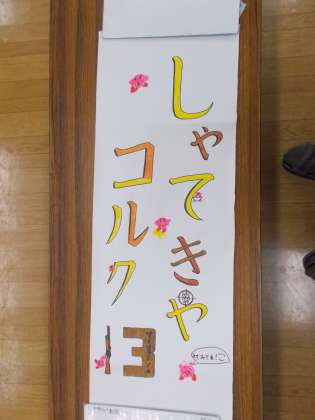 しゃてきや
コルク
13